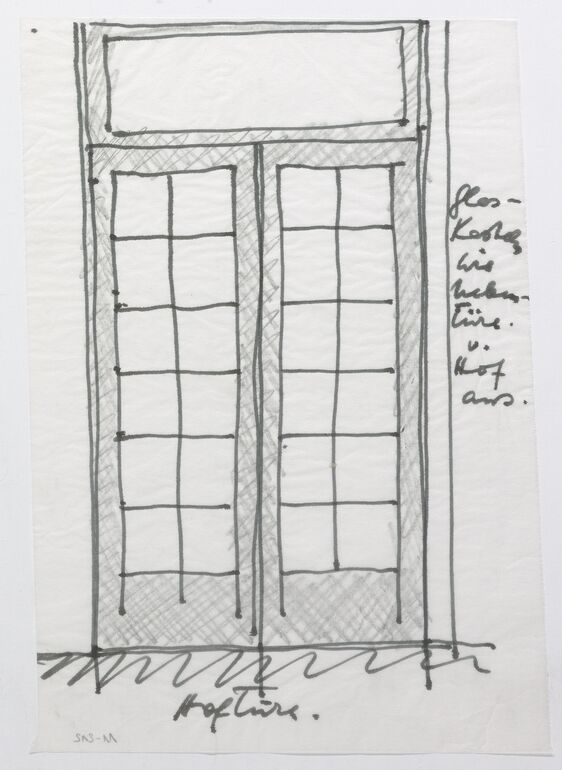 Glas-
Kasten
wie
neben-
türe.
v.
Hof
aus.
Hoftüre.